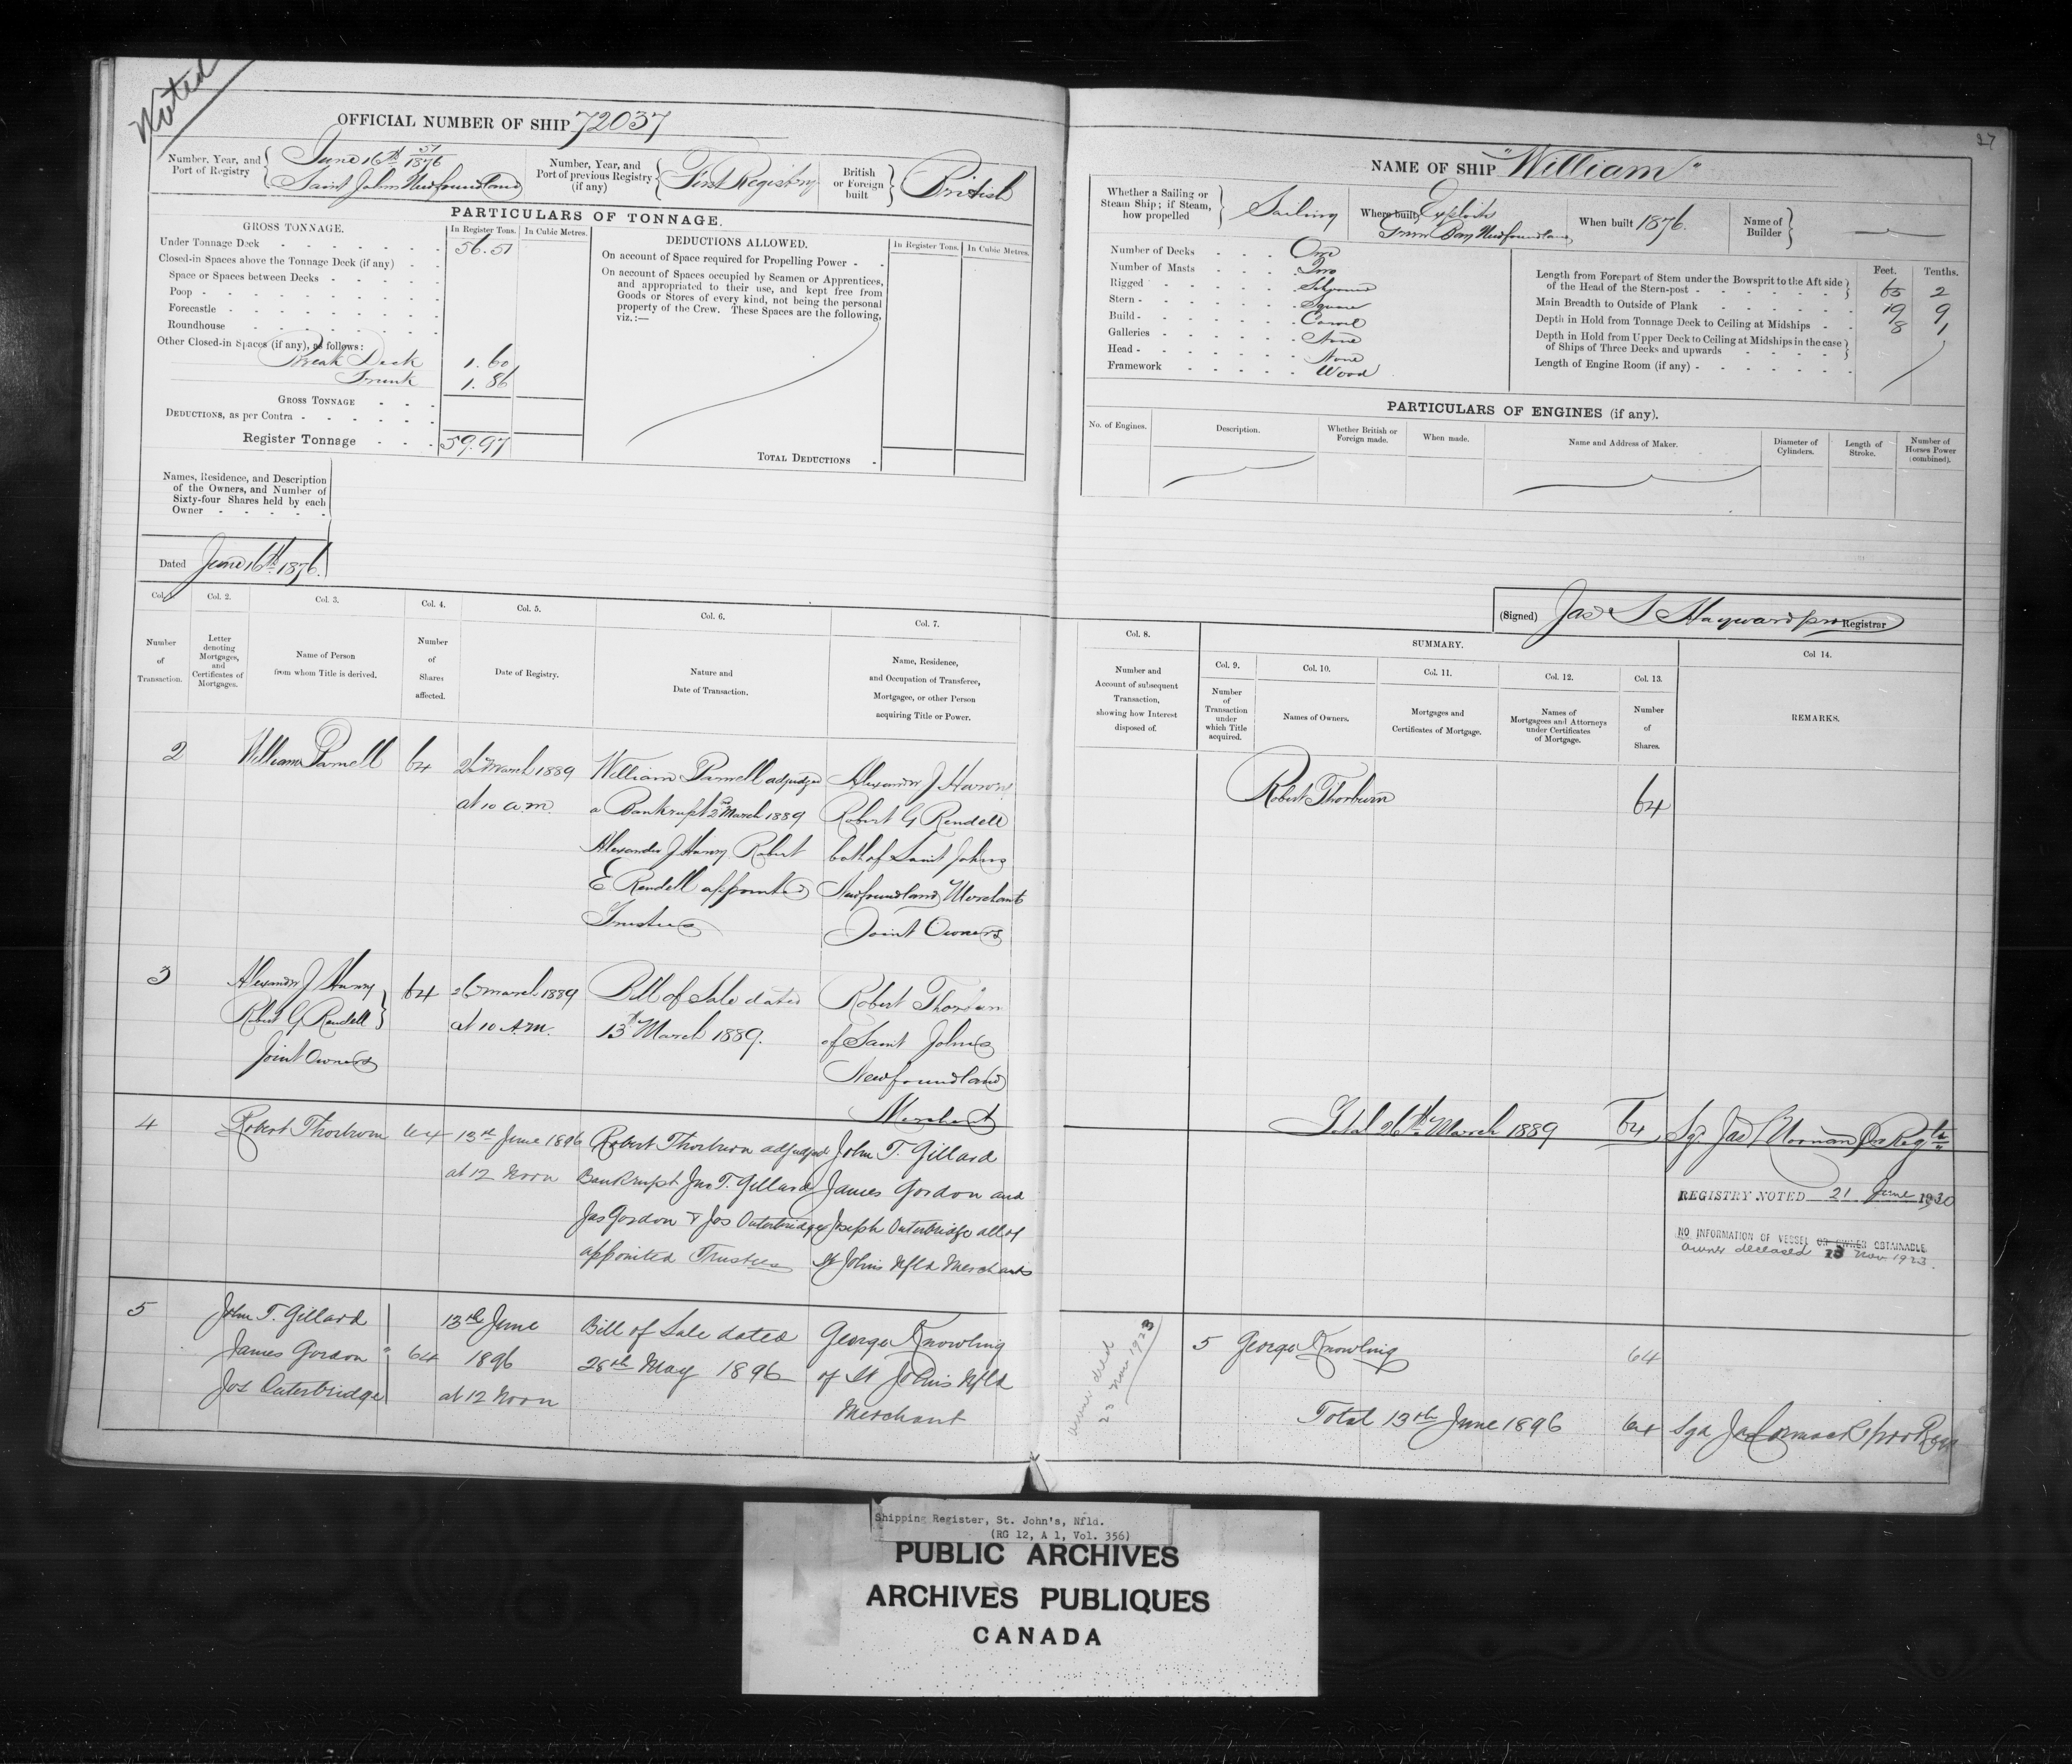 Noted
27
OFFICIAL NUMBER OF SHIP 72037
Number, Year, and Port of Registry
June 16th 51/1876
Saint Johns Newfoundland
Number, Year, and Port of previous Registry (if any)
First Registry
British or Foreign built
British
PARTICULARS OF TONNAGE.
GROSS TONNAGE.
In Register Tons.
In Cubic Metres.
Under Tonnage Deck 56.51
Closed-in Spaces above the Tonnage Deck (if any)
Space or Spaces between Decks
Poop
Forecastle
Roundhouse
Other Closed-in Spaces (if any), as follows:
Break Deck 1.60
Trunk 1.86
GROSS TONNAGE
DEDUCTIONS, as per Contra
Register Tonnage 59.97
DEDUCTIONS ALLOWED.
In Register Tons.
In Cubic Metres.
On account of Space required for Propelling Power
On account of Spaces occupied by Seamen or Apprentices,
and appropriated to their use, and kept free from
Goods or Stores of every kind, not being the personal
property of the Crew. These Spaces are the following,
viz.:—
TOTAL DEDUCTIONS
Names, Residence, and Description
of the Owners, and Number of
Sixty-four Shares held by each
Owner
Dated June 16th 1876.
NAME OF SHIP "William"
Whether a Sailing or
Steam Ship; if Steam,
how propelled
Sailing
Where built
Exploits
Newfoundland
When built 1876.
Name of Builder
Number of Decks One
Number of Masts Two
Rigged Schooner
Stern Square
Build Carvel
Galleries None
Head None
Framework Wood
Feet. Tenths.
Length from Forepart of Stem under the Bowsprit to the Aft side
of the Head of the Stern-post 65 2
Main Breadth to Outside of Plank 19 9
Depth in Hold from Tonnage Deck to Ceiling at Midships 8 1
Depth in Hold from Upper Deck to Ceiling at Midships in the case
of Ships of Three Decks and upwards
Length of Engine Room (if any)
PARTICULARS OF ENGINES (if any).
No. of Engines.
Description.
Whether British or Foreign made.
When made.
Name and Address of Maker.
Diameter of Cylinders.
Length of Stroke.
Number of Horses Power (combined).
(Signed) Jas S Hayward pro Registrar
Col. 1. Col. 2. Col. 3. Col. 4. Col. 5. Col. 6. Col. 7.
Number of Transaction.
Letter denoting Mortgages, and Certificates of Mortgages.
Name of Person from whom Title is derived.
Number of Shares affected.
Date of Registry.
Nature and Date of Transaction.
Name, Residence, and Occupation of Transferee, Mortgagee, or other Person acquiring Title or Power.
Col. 8.
Number and Account of subsequent Transaction, showing how Interest disposed of.
SUMMARY.
Col. 9. Col. 10. Col. 11. Col. 12. Col. 13. Col 14.
Number of Transaction under which Title acquired.
Names of Owners.
Mortgages and Certificates of Mortgage.
Names of Mortgagees and Attorneys under Certificates of Mortgage.
Number of Shares.
REMARKS.
2 William Parnell 64
26 March 1889
at 10 am.
William Parnell adjudged
a Bankrupt 2nd March 1889
Alexander J Harvey Robert
Rendell appointed
Trustees
Alexander J Harvey
Robert G Rendell
both of Saint Johns
Newfoundland Merchants
Joint Owners
Robert Thorburn 64
3
Alexander J Harvey
Robert G Rendell
Joint Owners
64
26 March 1889
at 10 A.M.
Bill of Sale dated
13th March 1889.
Robert Thorburn
of Saint Johns
Newfoundland
Merchant
Total 26th March 1889 64
4 Robert Thorburn 64
13th June 1896
at 12 Noon
Robert Thorburn adjudged
Bankrupt Jno T. Gillard
Jas Gordon & Jos Outerbridge
appointed Trustees
John T. Gillard
James Gordon and
Joseph Outerbridge all of
St Johns Nfld Merchants
REGISTRY NOTED 21 June 1920
NO INFORMATION OF VESSEL OR OWNER OBTAINABLE.
owner deceased 23 Nov. 1923.
5
John T. Gillard
James Gordon
Jos Outerbridge
64
13th June
1896
at 12 Noon
Bill of Sale dated
28th May 1896
George Knowling
of St Johns Nfld
Merchant
owner dead
23 Nov 1923
5 George Knowling 64
Total 13th June 1896 64
Shipping Register, St. John's, Nfld.
(RG 12, A 1, Vol. 356)
PUBLIC ARCHIVES
ARCHIVES PUBLIQUES
CANADA